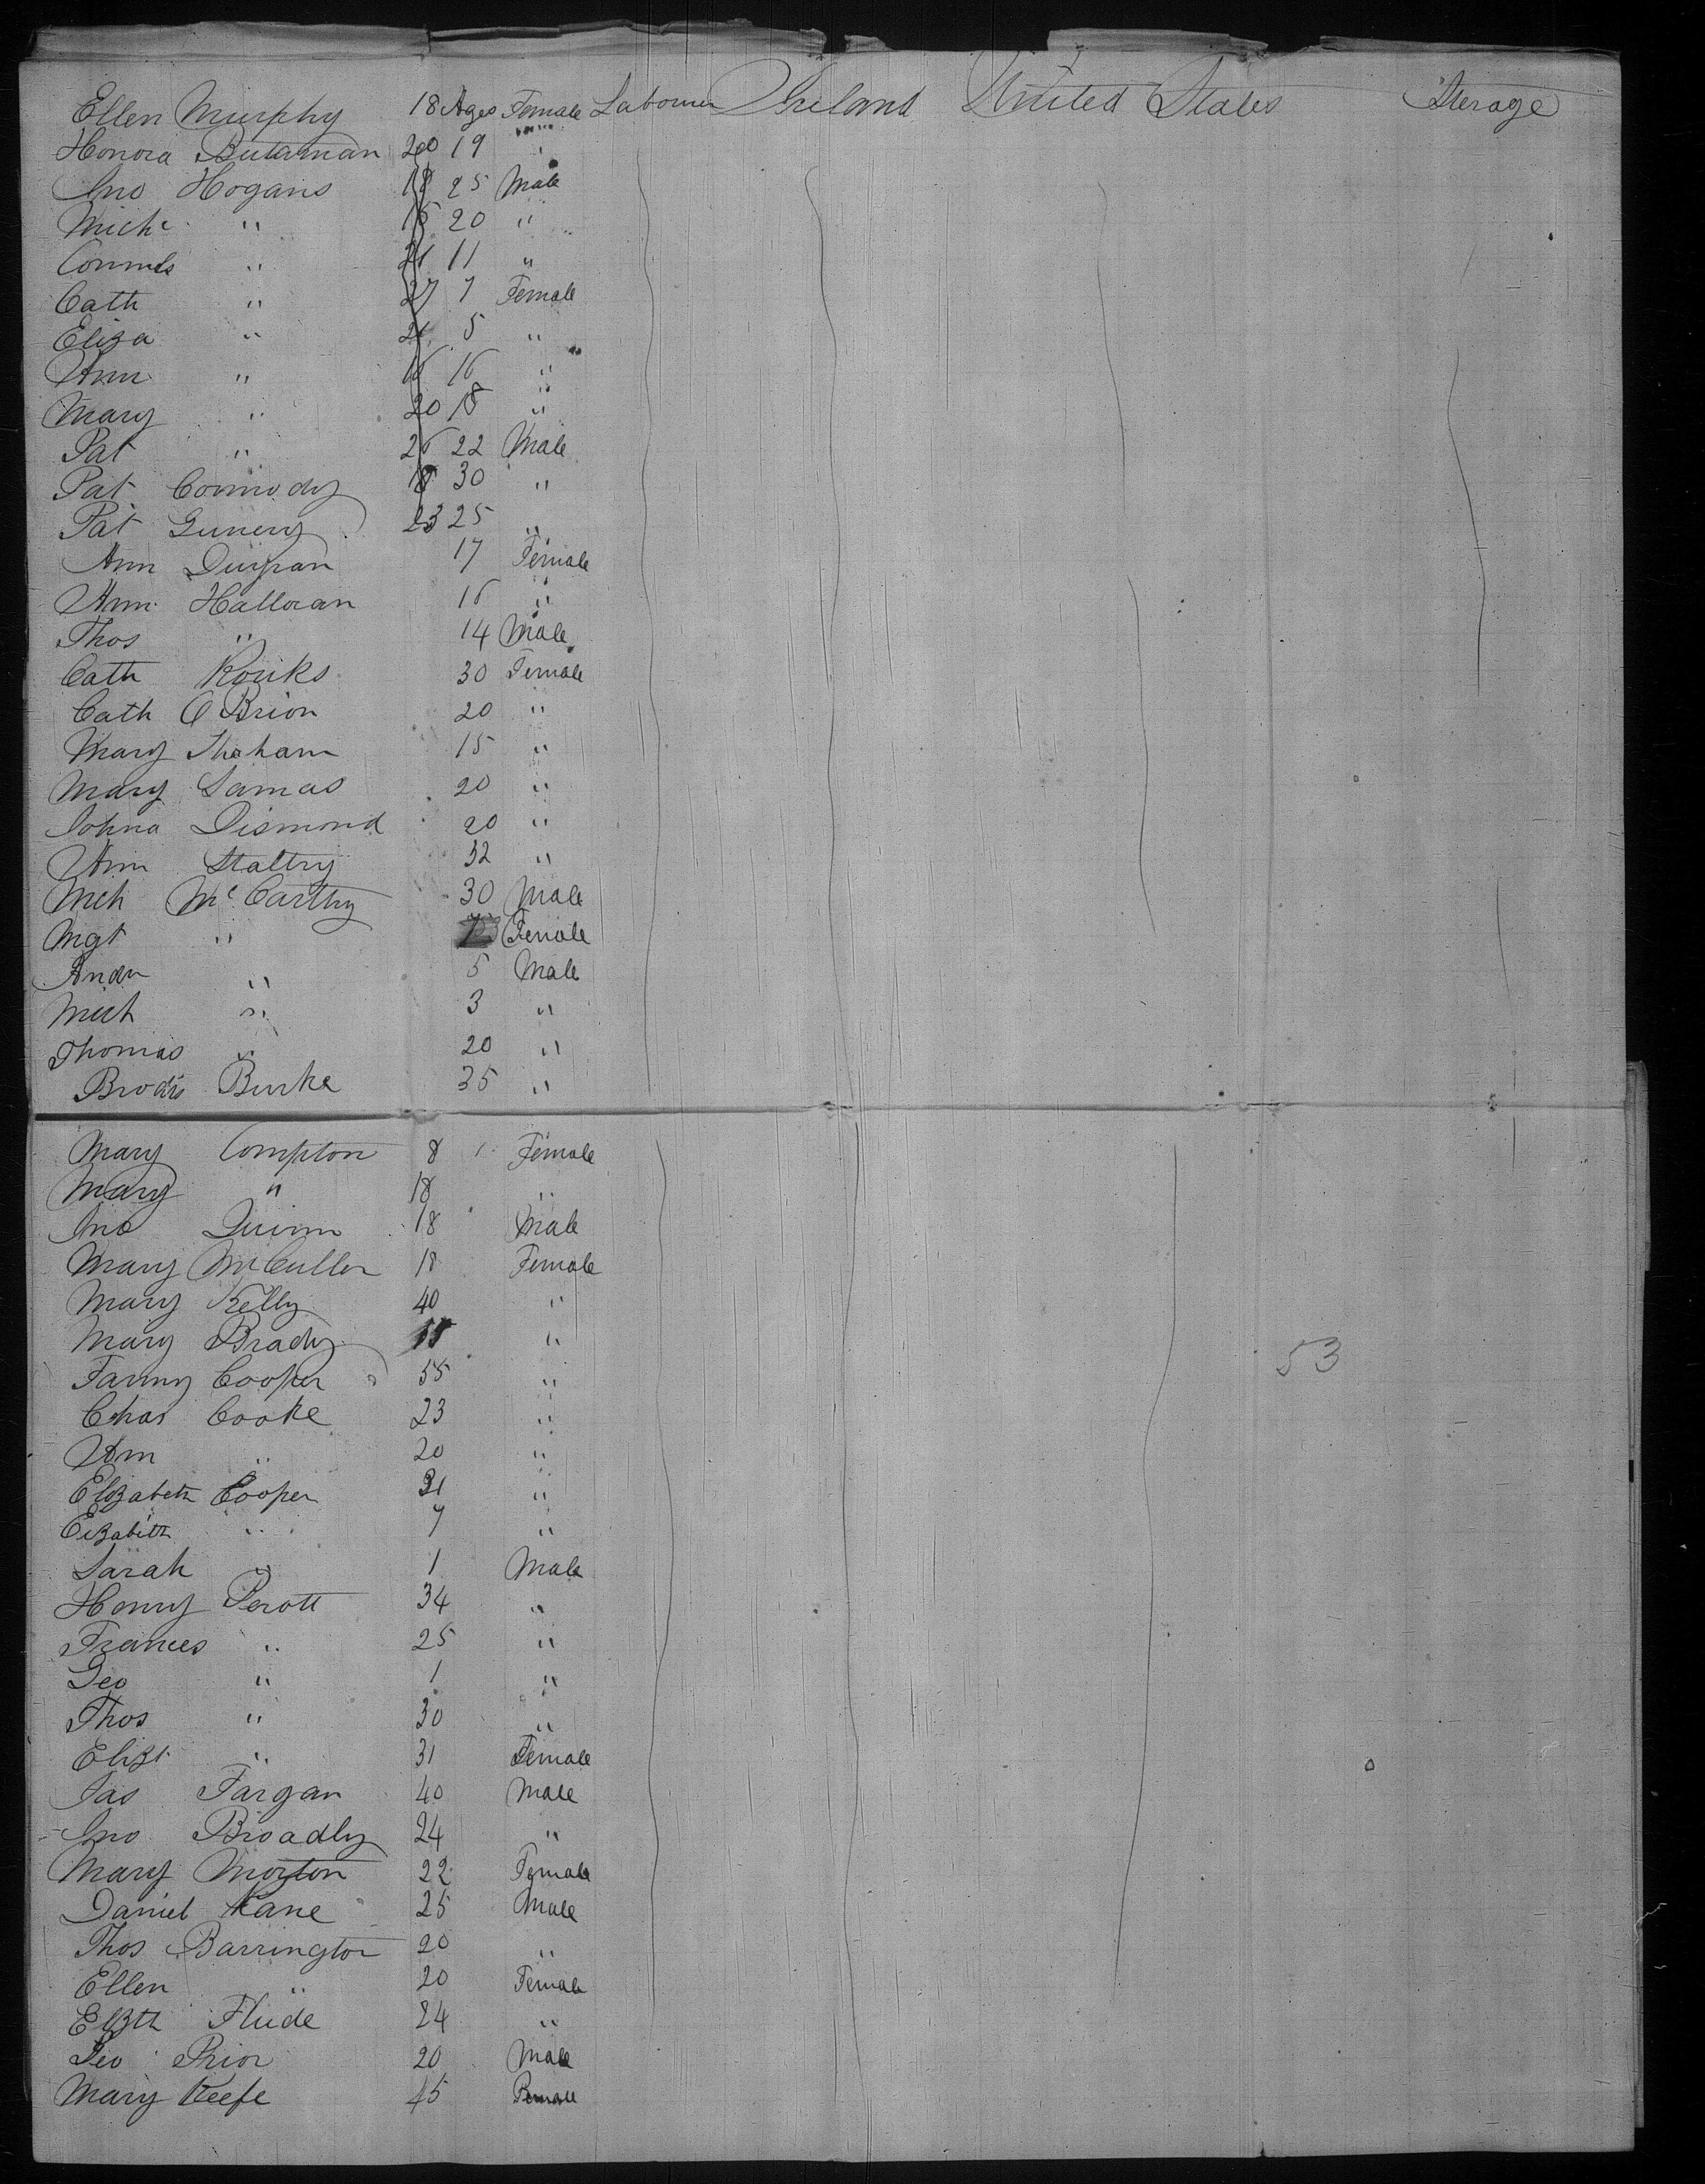 Ellen Murphy 18 Ages Female Labourer Ireland United States Sterage
Honora Butaman 20 19 "
Jno Hogans 18 25 Male
Mich " 15 20 "
" 21 11 "
Cath " 27 7 Female
Eliza " 21 5 "
Ann " 16 16 "
Mary " 20 18 "
Pat " 26 22 Male
Pat Connody 18 30 "
Pat 23 25 "
Ann 17 Female
Ann Halloran 16 "
Thos " 14 Male
Cath 30 Female
Cath O Brion 20 "
Mary 15 "
Mary Samas 20 "
Johna Dismond 20 "
Ann Staltry 32 "
Mch Mc Carthy 30 Male
Mgt " Female
Andw " 5 Male
Mich " 3 "
Thomas " 20 "
Burke 35 "
Mary Compton 8 Female
Mary " 18 "
Jno Quinn 18 Male
Mary McCuller 18 Female
Mary Kelly 40 "
Mary Brady "
Fanny Cooper 55 "
Chas Cooke 23 "
Ann " 20 "
Elizabeth Cooper 31 "
Eizabith " 7 "
Sarah " 1 Male
Henry Perott 34 "
Frances " 25 "
Geo " 1 "
Thos " 30 "
Elizt " 31 Female
Jas Fargan 40 Male
Jno Broadly 24 "
Mary Morton 22 Female
Daniel Kane 25 Male
Thos Barrington 20 "
Ellen " 20 Female
Elizth Flude 24 "
Geo Prior 20 Male
Mary Keefe 45 Female
53